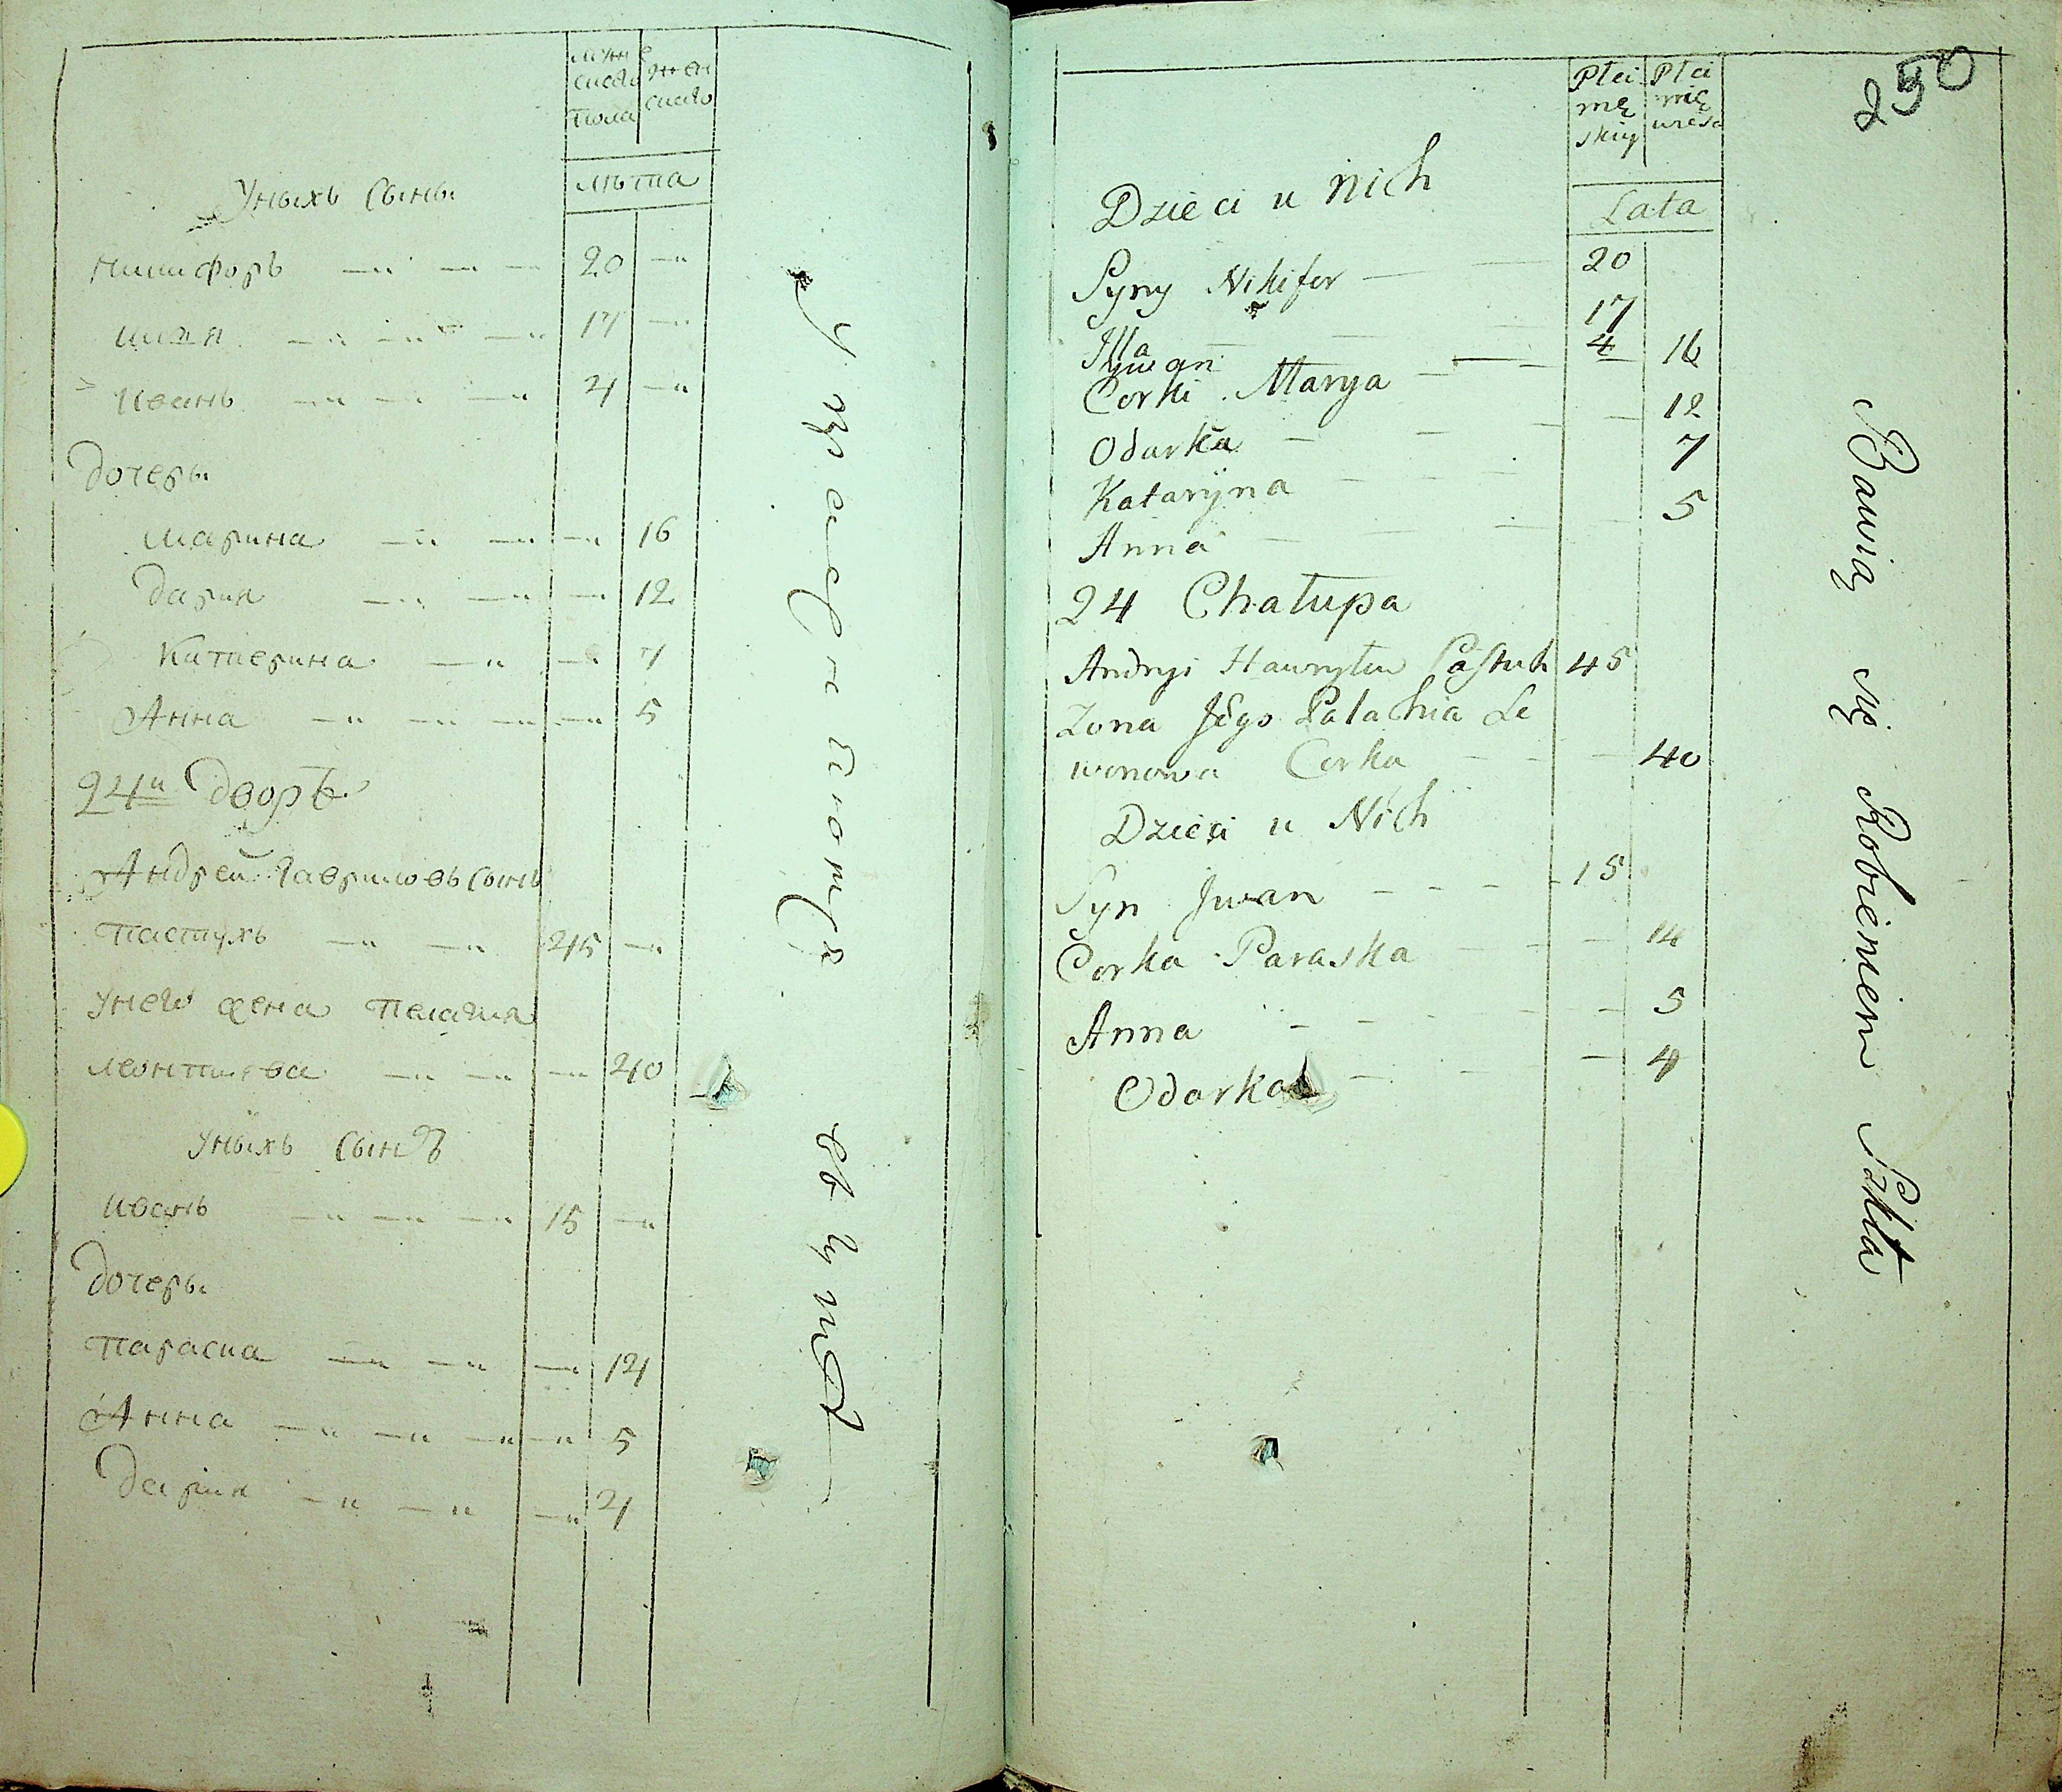 муж
ска
пола
жен
ска
лѣта
Уныхъ Сыны
никифоръ 20
илля 17
Иванъ 4
дочеры
марина 16
дария 12
Катерина 7
Анна 5
24й дворъ
Андрей Гавриловъ Сынъ
пастухъ 45
Унего жена пелагия
леонтиева 40
Уныхъ Сынъ
иванъ 15
дочеры
параска 14
Анна 5
дария 4
250
Płci
mę
skiy
Płci
Lata
Dzieci u nich
Syny Nikifor 20
Illa 17
Iwan 4
Corki Marya 16
Odarka 12
Kataryna 7
Anna 5
24 Chałupa
Andryi Hawryłow Pastuh 45
Zona Jego Palachia Le
wonowa Corka 40
Dzieci u Nich
Syn Iwan 15
Corka Paraska 14
Anna 5
Odarka 4
Bawią się Robieniem